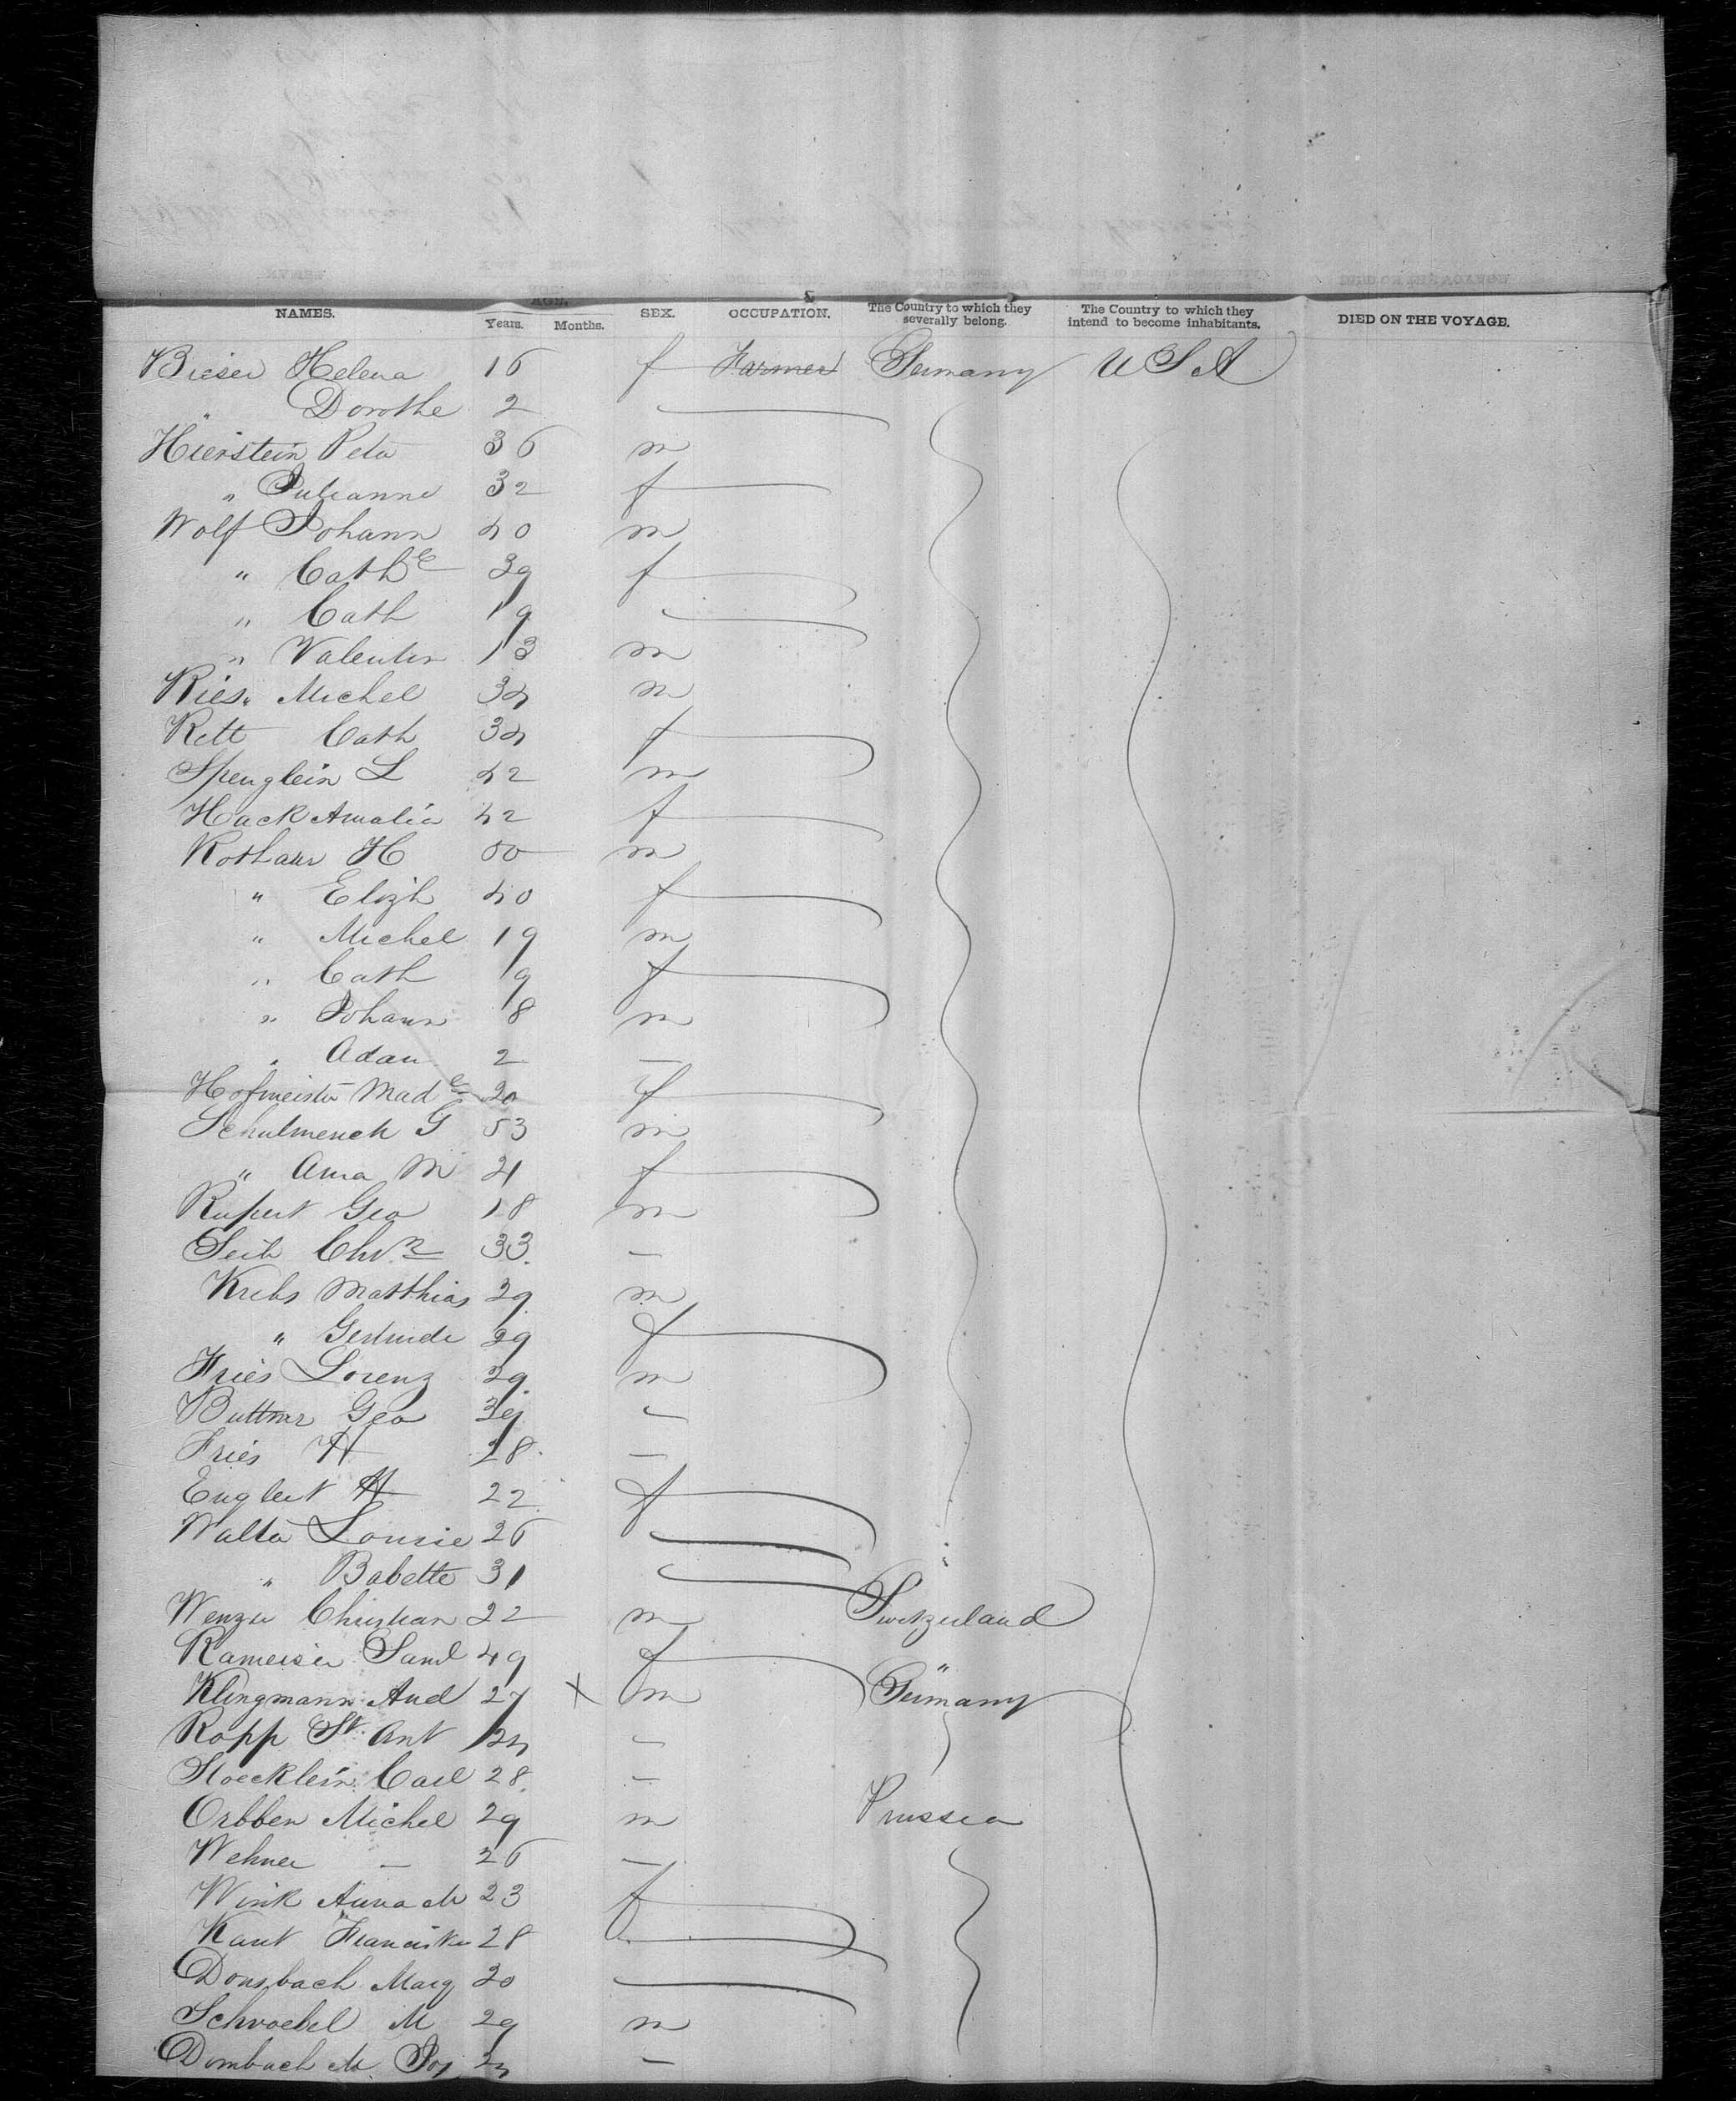 NAMES. AGE. Years. Months. SEX. OCCUPATION. The Country to which they severally belong. The Country to which they intend to become inhabitants. DIED ON THE VOYAGE.
Bieser Helena 16 f Farmer Germany U S A
" Dorothe 2
Hierstein Peter 36 m
" Julianne 32 f
Wolf Johann 40 m
" Cathe 39 f
" Cath 19
" Valentin 13 m
Ries " Michel 34 m
Rett Cath 34 f
Spenglein L 42 m
Hack Amalia 42 f
Rothaur H 50 m
" Elizh 40 f
" Michel 19 m
" Cath 9 f
" Johann 8 m
" Adam 2 —
Hofmeister Made 20 f
Schulmench G 53 m
" Anna M 21 f
Rupert Geo 18 m
Seib Chrn 33 —
Krebs Matthias 29 m
" Gertrude 29 f
Fries Lorenz 29 m
Buttner Geo 39 —
Fries H 28 —
Englert 22 f
Walter Louise 26
" Babette 31
Wenzer Christian 22 m Switzerland
Rameiser Saml 49 f "
Klingmann And 27 X m Germany
Ropp St. Ant 24 —
Stoecklein Carl 28 —
Orbben Michel 29 m Prussia
Wehner — 26 —
Wink Anna M 23 f
Kant Franciska 28
Donsbach Marg 20
Schwoebel M 29 m
Dombach M Jos 24 —